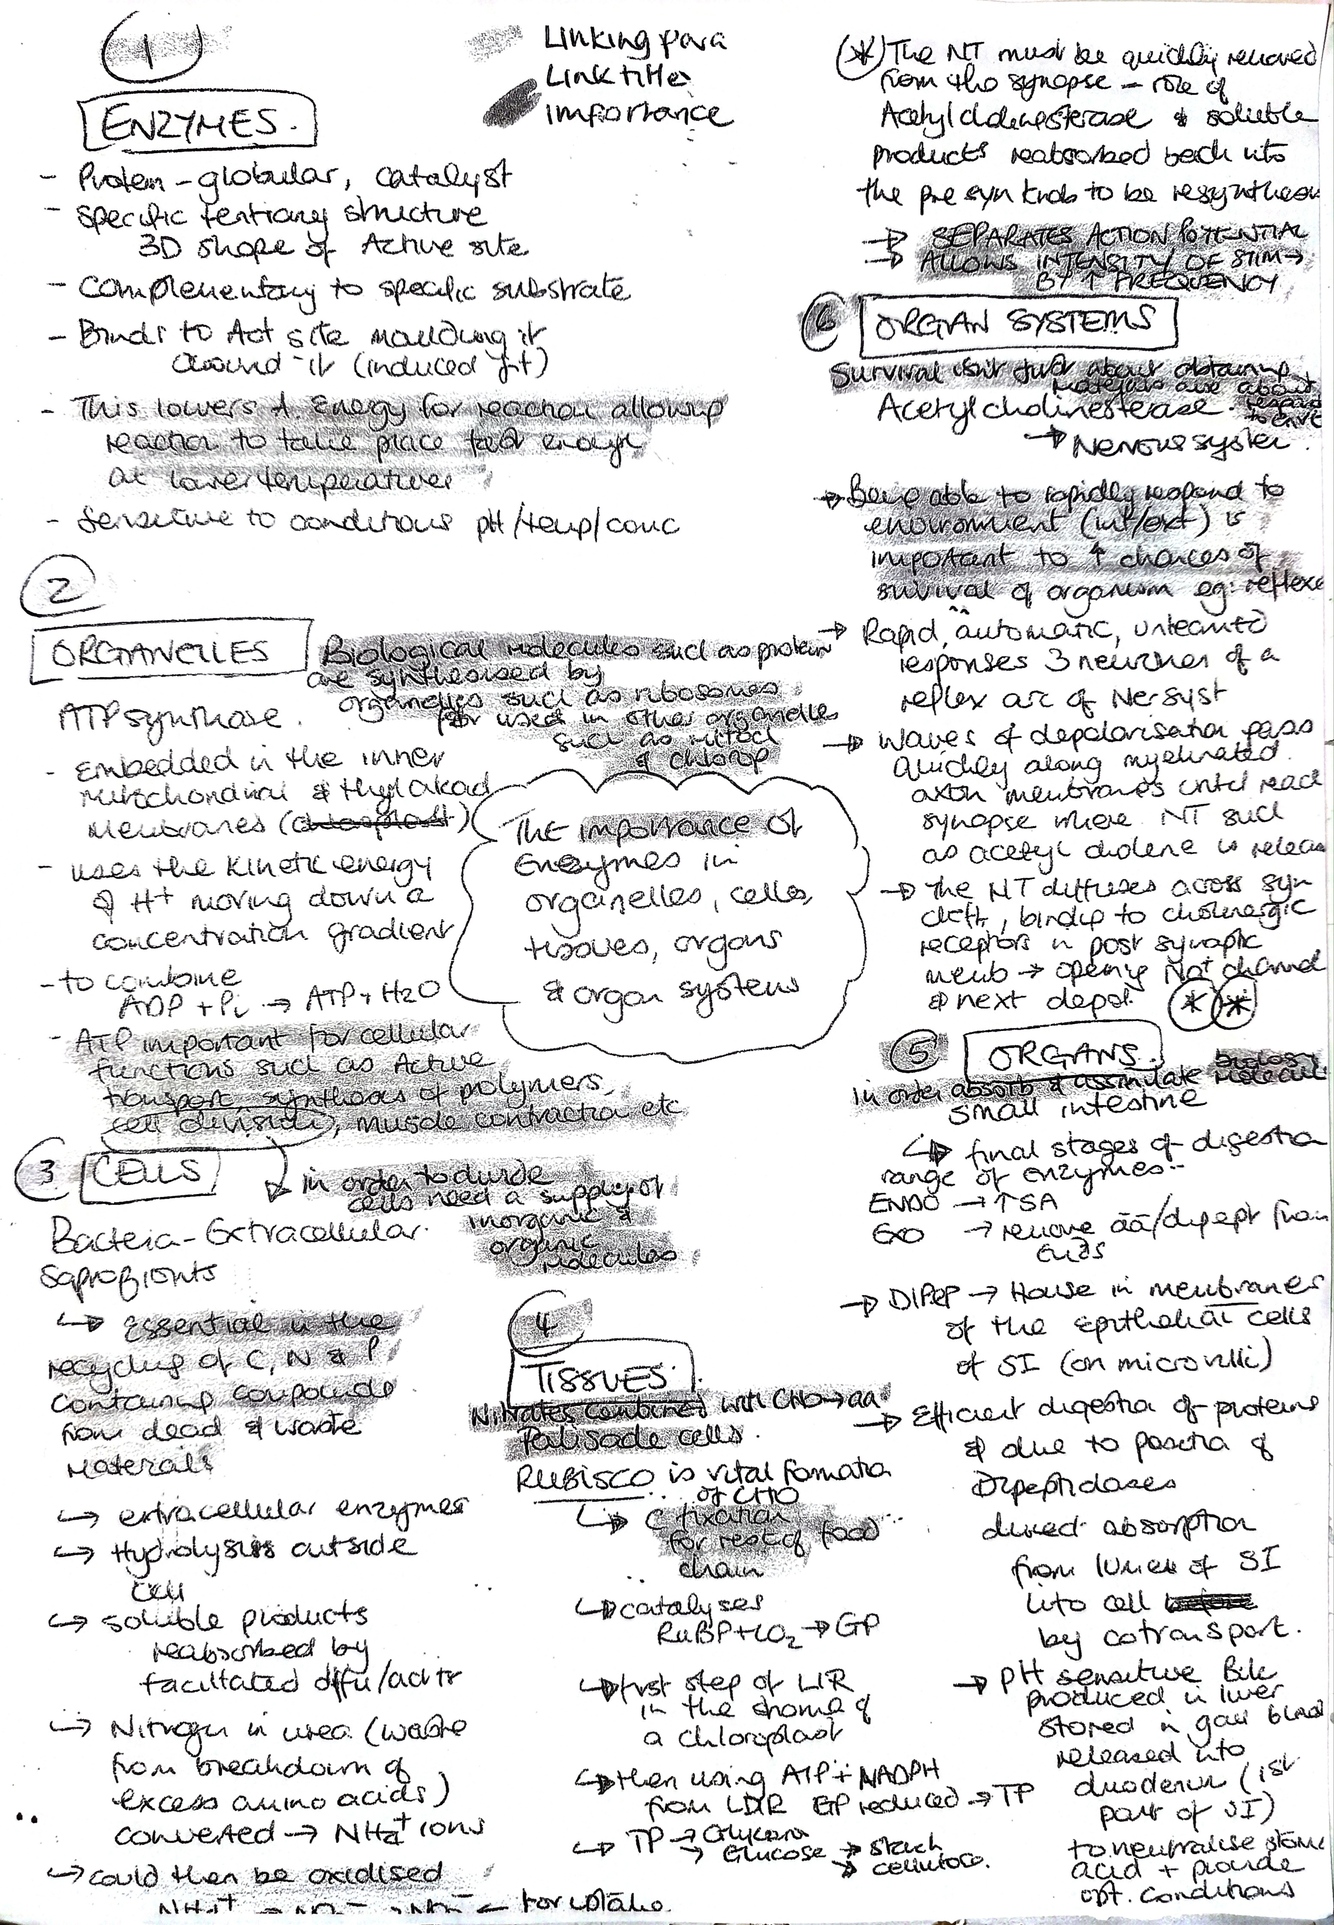 1
Linking para
Link title
importance
ENZYMES.
- Protein - globular, catalyst
- Specific tertiary structure
3D shape of Active site
- Complementary to specific substrate
- Binds to Act site moulding it
around it (induced fit)
- This lowers A. Energy for reaction allowing
reaction to take place fast enough
at lower temperatures
- Sensitive to conditions pH/temp/conc
2
ORGANELLES
Biological molecules such as protein
are synthesised by
organelles such as ribosomes
for used in other organelles
such as mitoch
& chlorop
ATP synthase.
- Embedded in the inner
mitochondrial & thylakoid
membranes (chloroplast)
- uses the kinetic energy
of H+ moving down a
concentration gradient
- to combine
ADP + Pi → ATP + H2O
- ATP important for cellular
functions such as Active
transport, synthesis of polymers,
cell division, muscle contraction etc
The importance of
Enzymes in
organelles, cells,
tissues, organs
& organ systems
3 CELLS
in order to divide
cells need a supply of
inorganic &
organic
molecules
Bacteria - Extracellular.
Saprobionts
↳ Essential in the
recycling of C, N & P
containing compounds
from dead & waste
materials
↳ extracellular enzymes
↳ Hydrolysis outside
cell
↳ soluble products
reabsorbed by
facilitated diffu/act tr
↳ Nitrogen in urea (waste
from breakdown of
excess amino acids)
converted → NH4+ ions
↳ could then be oxidised
for uptake.
4
TISSUES.
Nitrates combined with CHO → aa.
Palisade cells.
RUBISCO is vital formation
of CHO
↳ C fixation
for rest of food
chain
↳ catalyses
RuBP + CO2 → GP
↳ first step of LIR
in the stroma of
a chloroplast
↳ then using ATP + NADPH
from LDR GP reduced → TP
↳ TP → Glycerol
→ Glucose → starch
→ cellulose.
* The NT must be quickly removed
from the synapse - role of
Acetylcholinesterase & soluble
products reabsorbed back into
the pre syn knob to be
→ SEPARATES ACTION POTENTIAL
→ ALLOWS INTENSITY OF STIM →
BY ↑ FREQUENCY
6 ORGAN SYSTEMS
Survival isn't just about obtaining
materials
Acetylcholinesterase.
→ Nervous system.
→ Being able to rapidly respond to
environment (int/ext) is
important to ↑ chances of
survival of organism eg: reflexe
→ Rapid, automatic, unlearnt
responses 3 neurones of a
reflex arc of Ner syst
→ Waves of depolarisation pass
quickly along myelinated
axon membranes until reach
synapse where NT such
as acetyl choline is releas
→ The NT diffuses across syn
cleft, binding to cholinergic
receptors in post synaptic
memb → opening Na+ channel
& next depol. * *
5 ORGANS.
In order absorb & assimilate biology
molecul
small intestine
↳ final stages of digestion
range of enzymes:-
ENDO → ↑ SA
EXO → remove aa/dipept from
ends
→ DIPEP → House in membranes
of the epithelial cells
of SI (on microvilli)
→ Efficient digestion of proteins
& due to position of
Dipeptidases
direct absorption
from lumen of SI
into cell before
by cotransport.
→ pH sensitive Bile
produced in liver
stored in gall bladd
released into
duodenum (1st
part of SI)
to neutralise stoma
acid + provide
opt. conditions